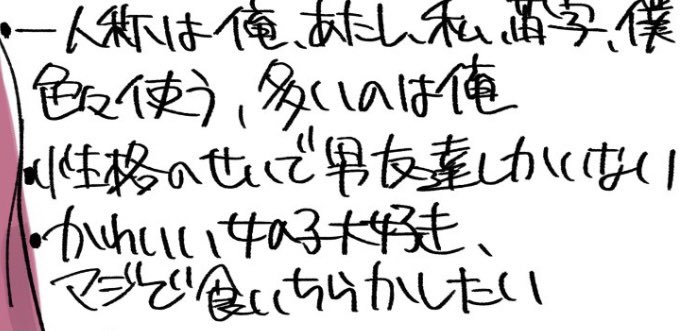 ・一人称は俺、あたし、私、苗字、僕
色々使う、多いのは俺
・性格のせいで男友達しかいない
・かわいい女の子大好き、
マジで食いちらかしたい